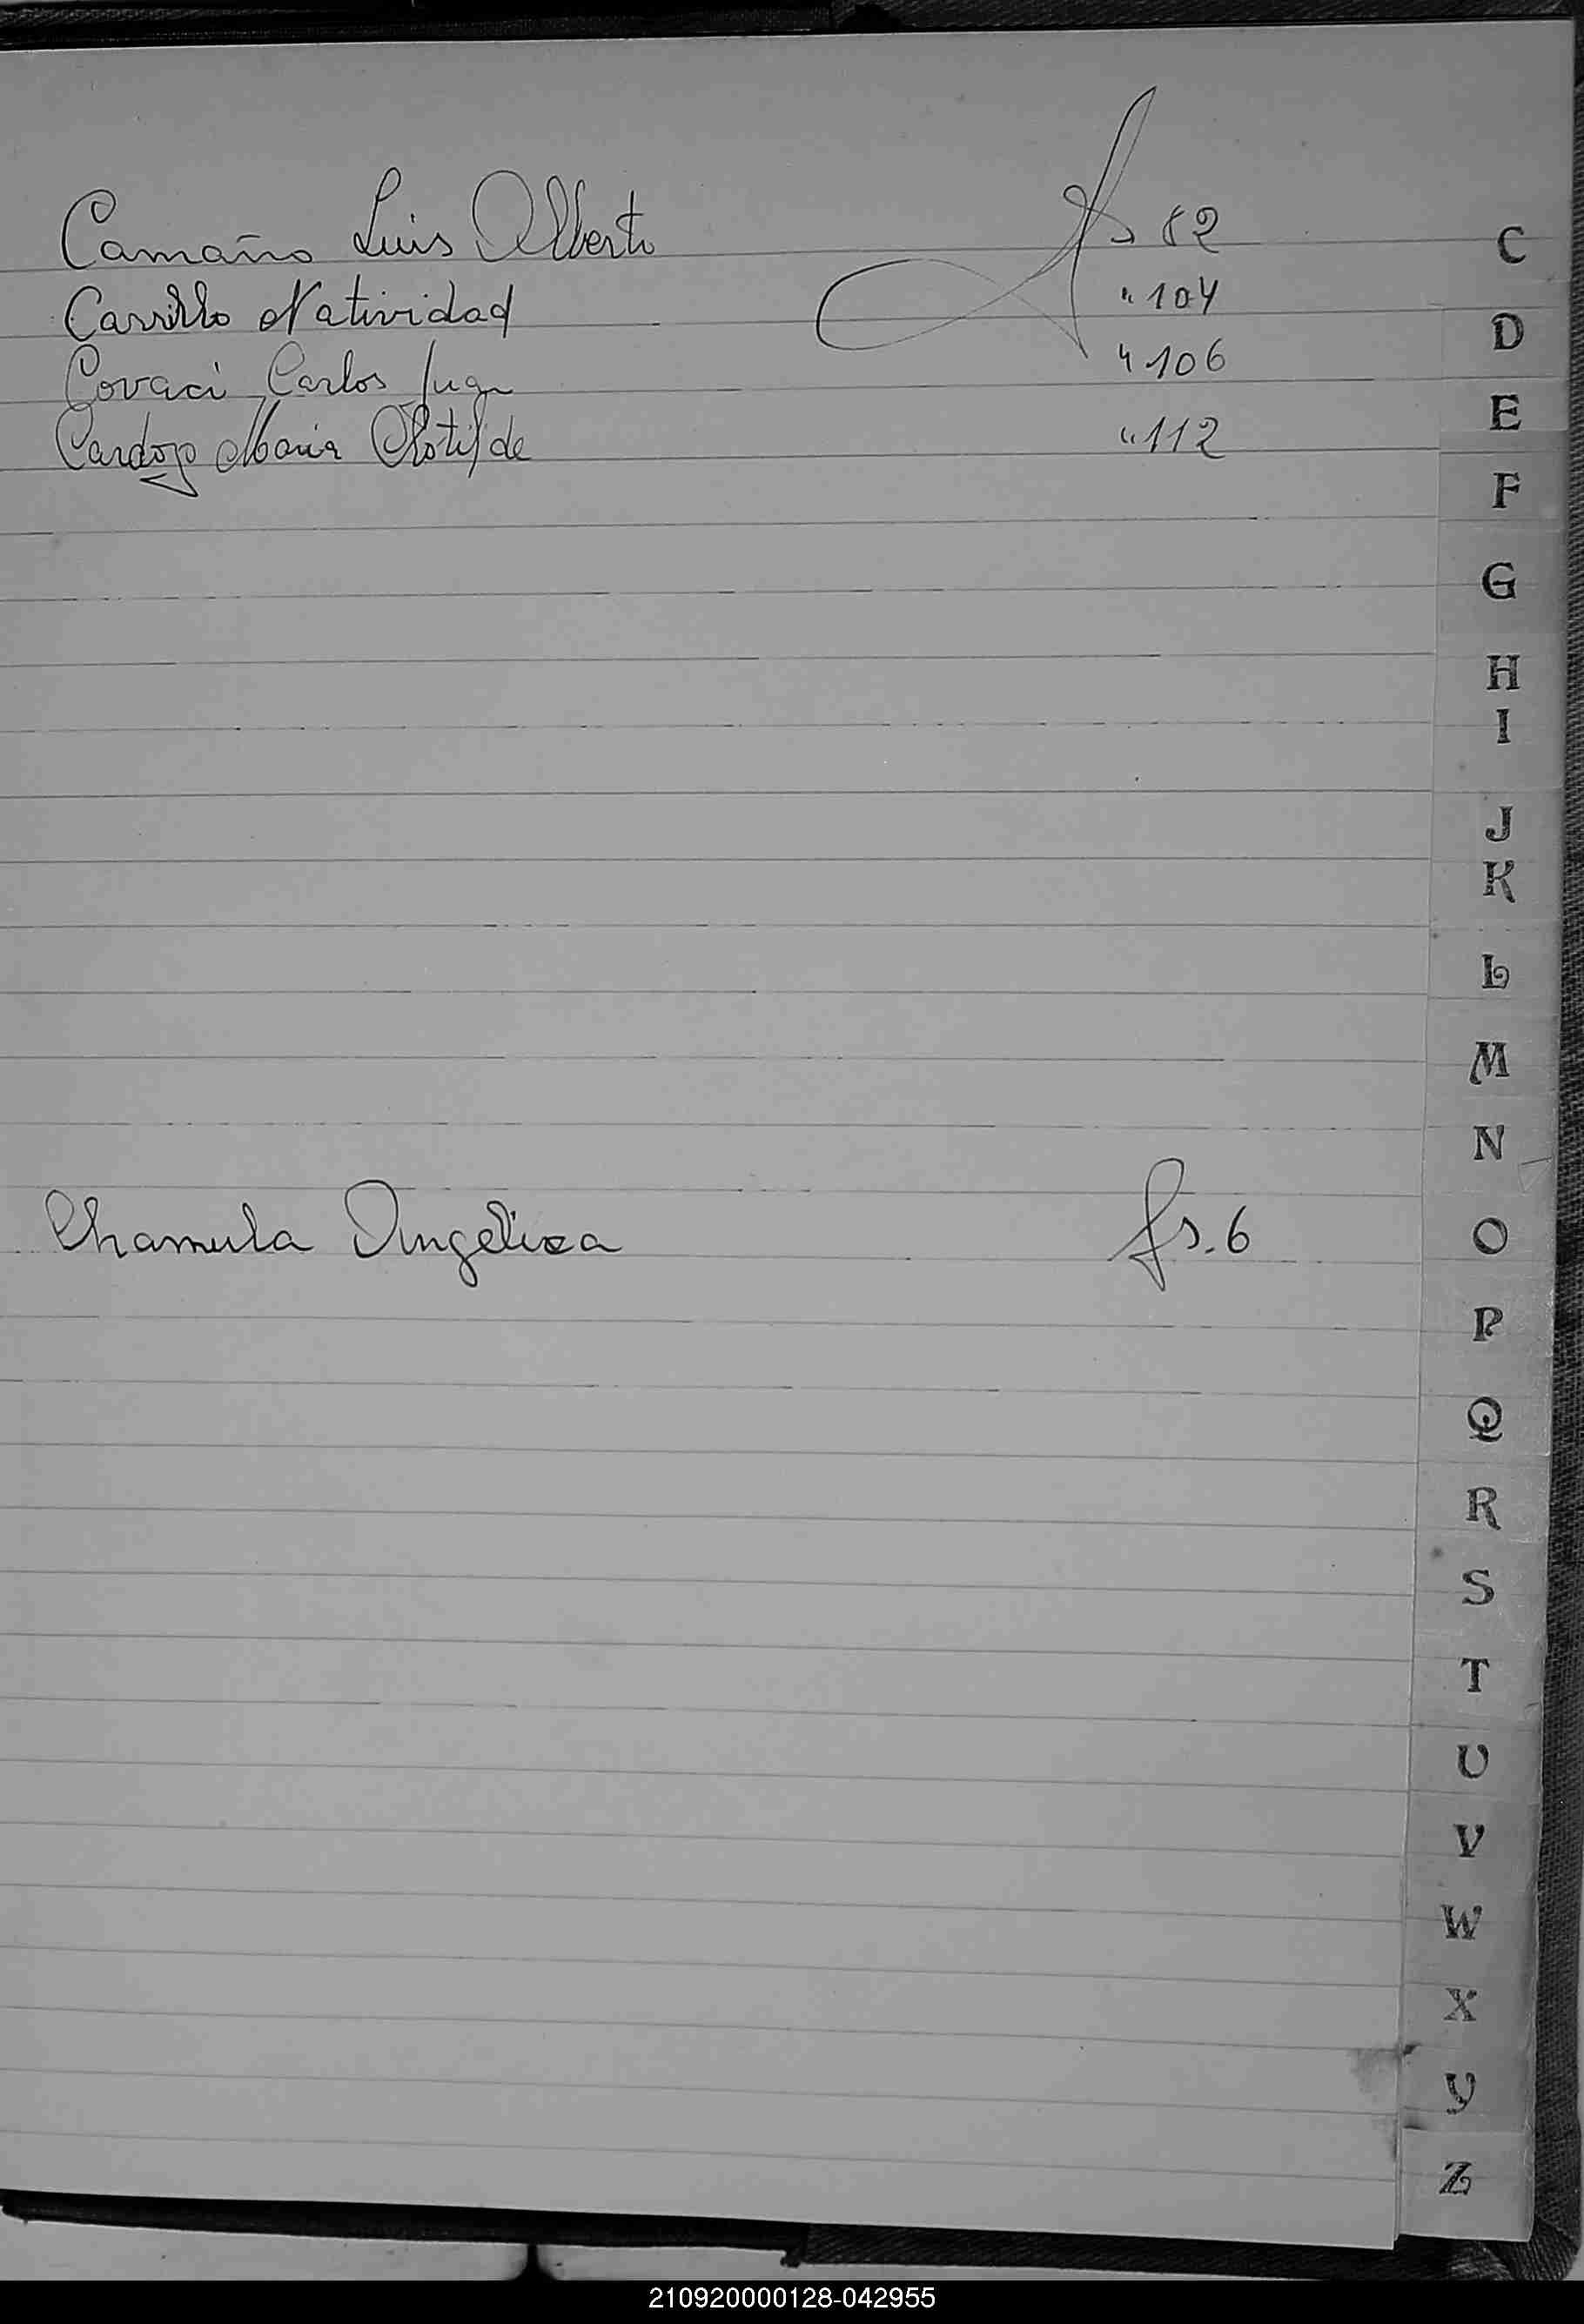 Camaño Luis Alberto fs 82
Carrillo Natividad " 104
Covaci Carlos Juan " 106
Cardozo Maria Clotilde " 112
Chamula Angelica fs. 6
C
D
E
F
G
H
I
J
K
L
M
N
O
P
Q
R
S
T
U
V
W
X
Y
Z
210920000128-042955